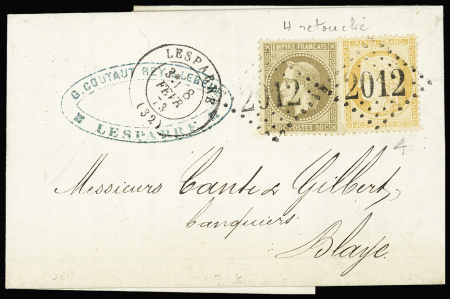 4 retouché
LESPARRE
8
FEVR
73
(32)
G. COUTAUT
LESPARRE
EMPIRE FRANÇAIS
POSTES 30C
2012
2012
4
Messieurs Cante & Gilbert,
banquiers
Blaye.